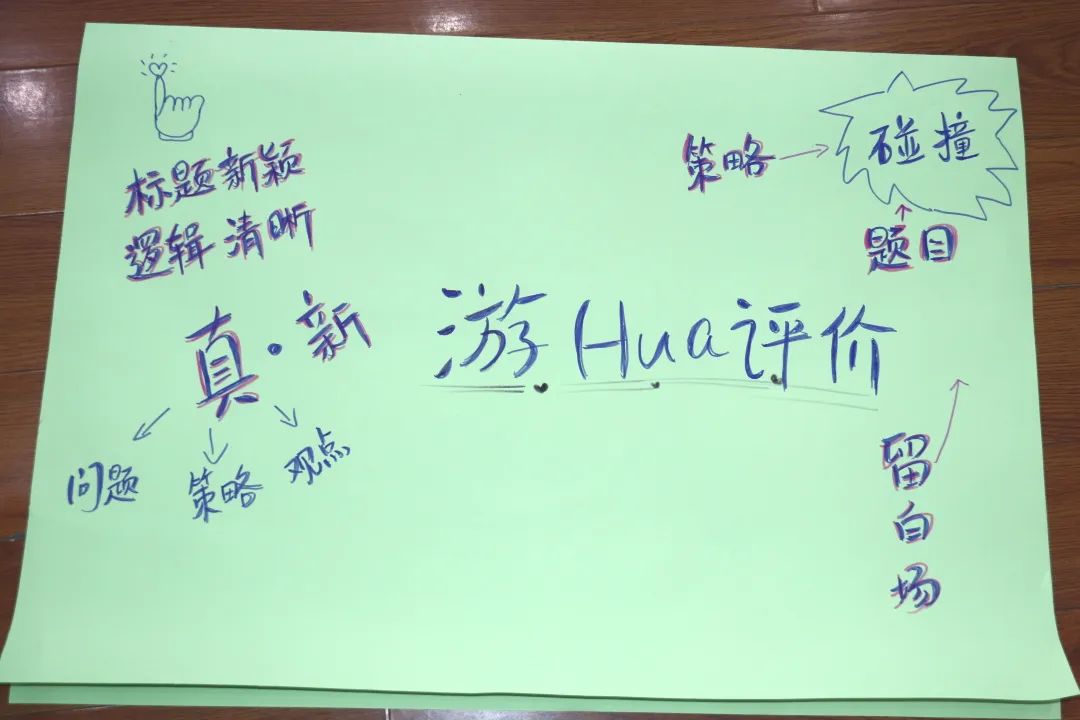 标题新颖
逻辑清晰
策略
碰撞
题目
真·新
游Hua评价
问题
策略
观点
留白场